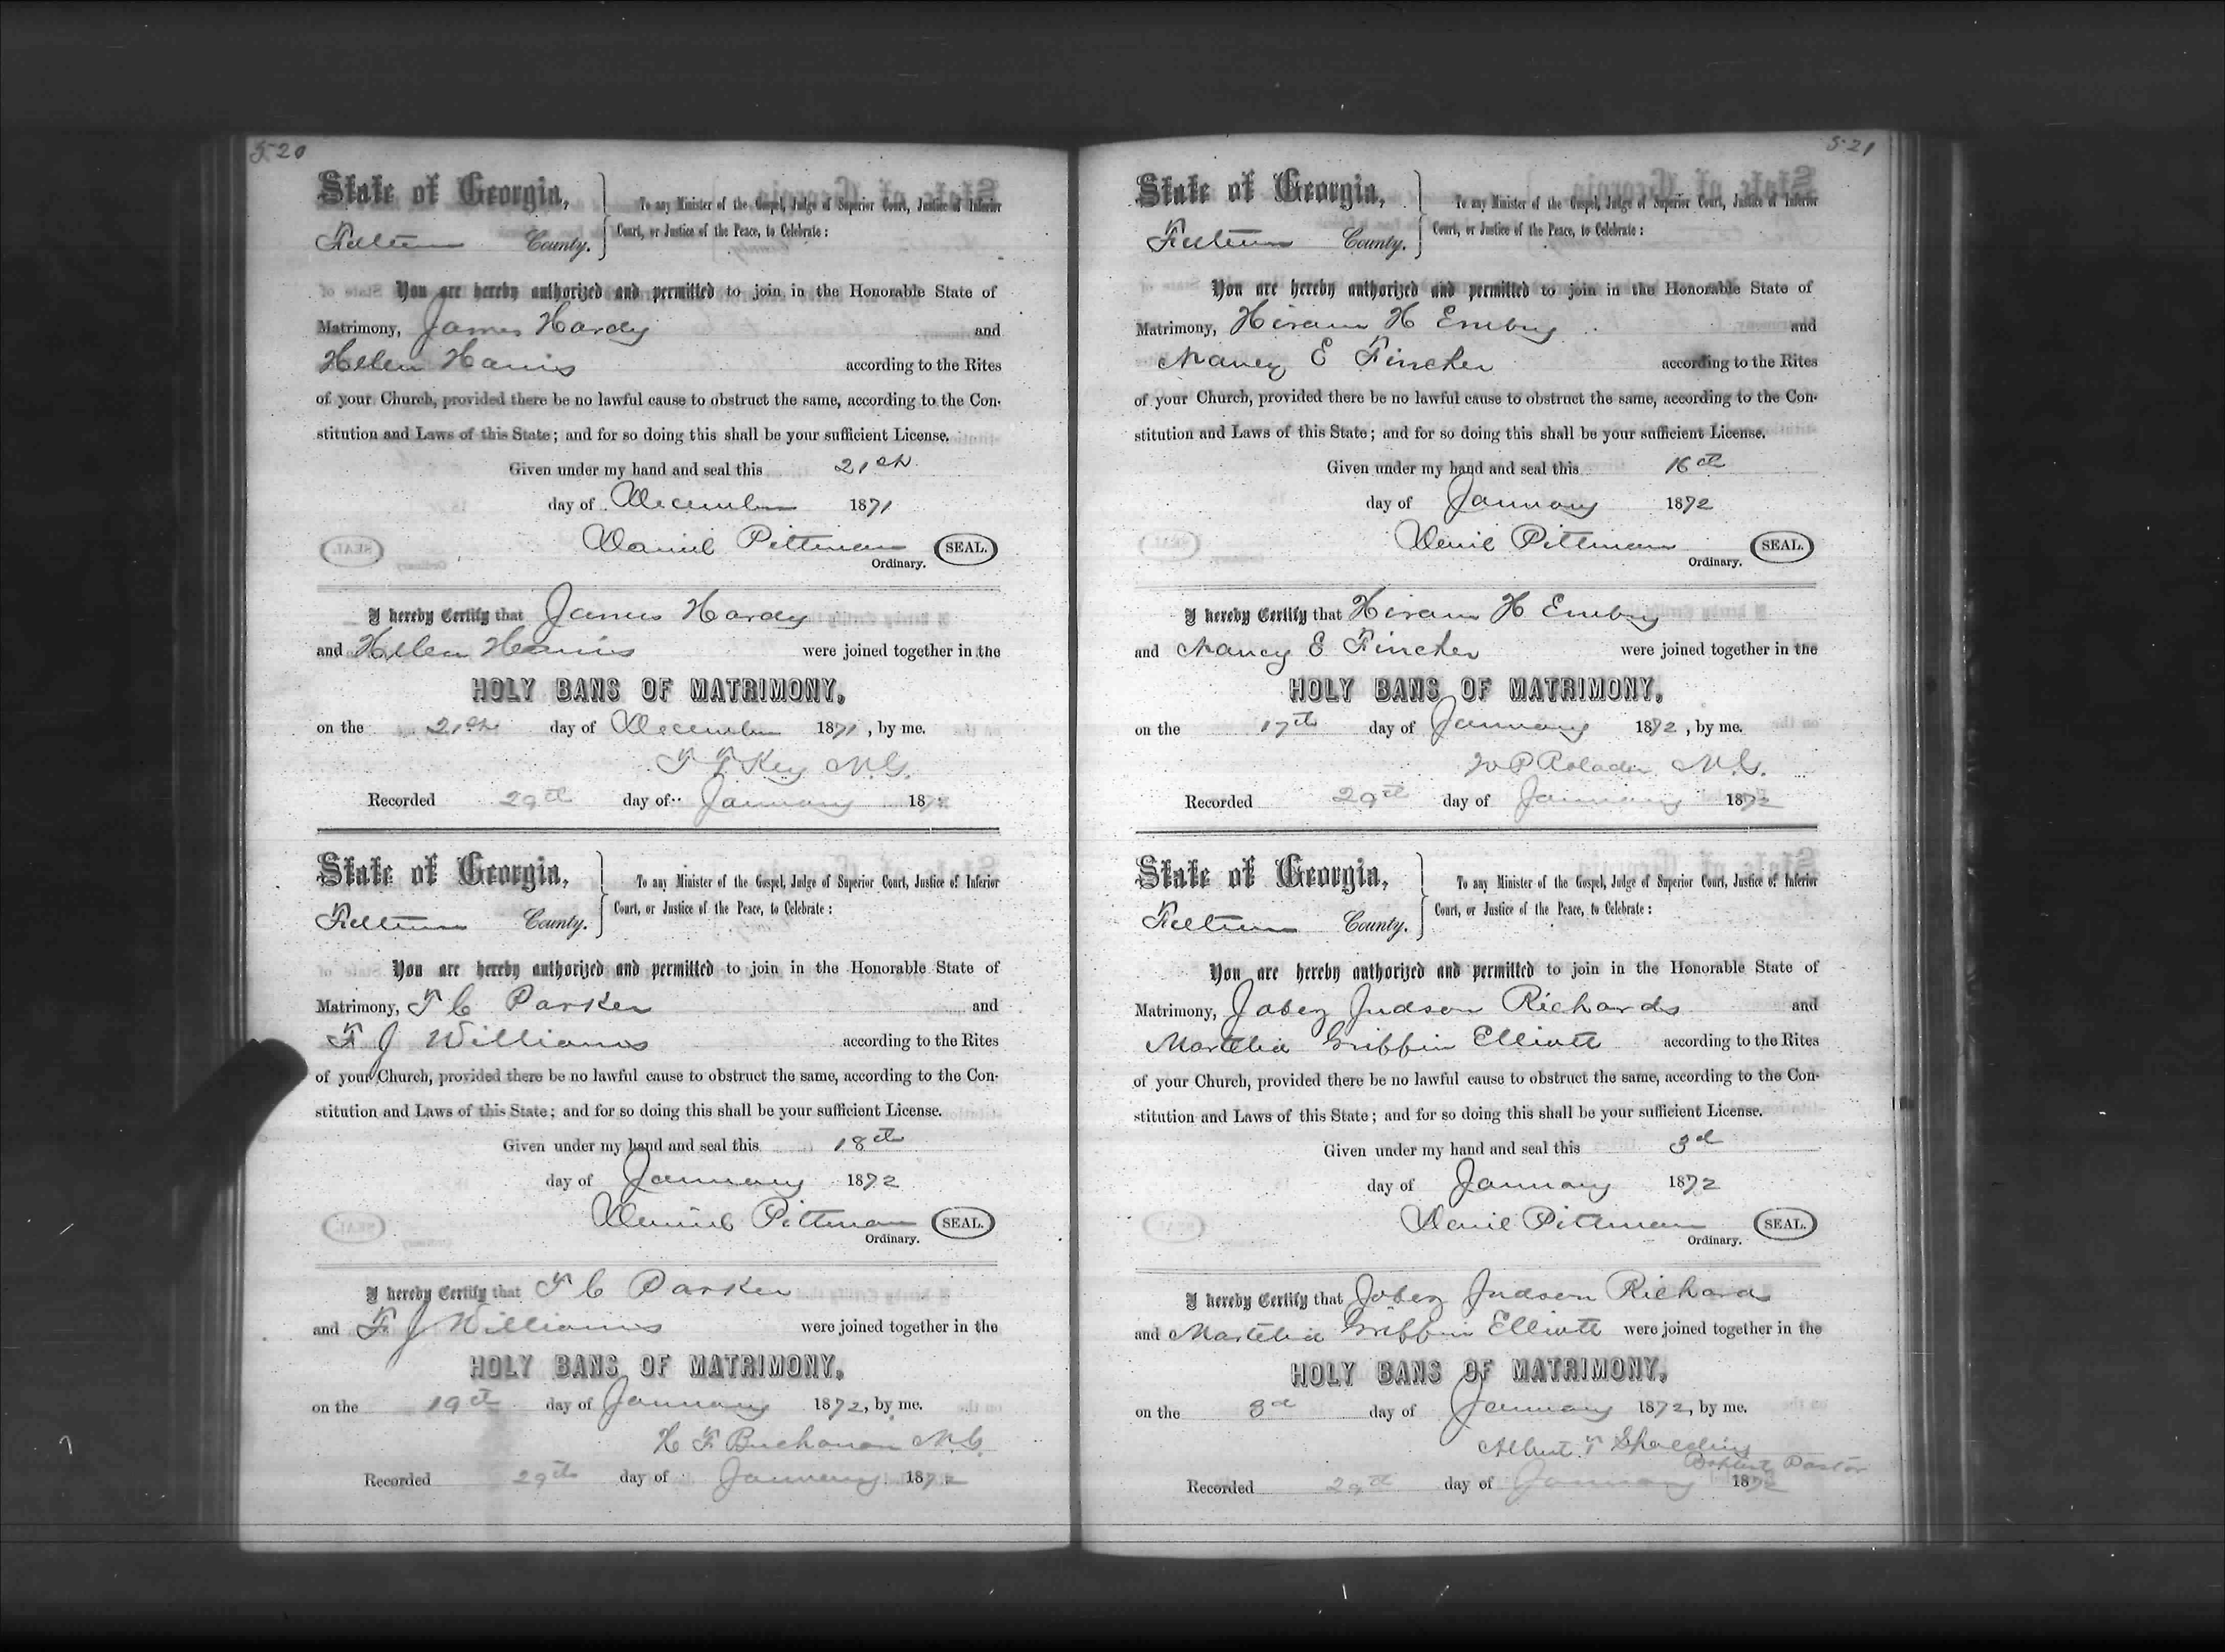 520
State of Georgia,
Fulton County.
To any Minister of the Gospel, Judge of Superior Court, Justice of Inferior
Court, or Justice of the Peace, to Celebrate:
You are hereby authorized and permitted to join in the Honorable State of
Matrimony, James Hardy and
Helen Harris according to the Rites
of your Church, provided there be no lawful cause to obstruct the same, according to the Con-
stitution and Laws of this State; and for so doing this shall be your sufficient License.
Given under my hand and seal this 21st
day of December 1871
Daniel Pittman SEAL.
Ordinary.
I hereby Certify that James Hardy
and Hellen Harris were joined together in the
HOLY BANS OF MATRIMONY,
on the 21st day of December 1871, by me.
T F Key M.G.
Recorded 29th day of January 1872
State of Georgia,
Fulton County.
To any Minister of the Gospel, Judge of Superior Court, Justice of Inferior
Court, or Justice of the Peace, to Celebrate:
You are hereby authorized and permitted to join in the Honorable State of
Matrimony, T C Parker and
F J Williams according to the Rites
of your Church, provided there be no lawful cause to obstruct the same, according to the Con-
stitution and Laws of this State; and for so doing this shall be your sufficient License.
Given under my hand and seal this 18th
day of January 1872
Daniel Pittman SEAL.
Ordinary.
I hereby Certify that T C Parker
and F J Williams were joined together in the
HOLY BANS OF MATRIMONY,
on the 19th day of January 1872, by me.
H F Buchanan M.G.
Recorded 29th day of January 1872
521
State of Georgia,
Fulton County.
To any Minister of the Gospel, Judge of Superior Court, Justice of Inferior
Court, or Justice of the Peace, to Celebrate:
You are hereby authorized and permitted to join in the Honorable State of
Matrimony, Hiram H Embry and
Nancy E Fincher according to the Rites
of your Church, provided there be no lawful cause to obstruct the same, according to the Con-
stitution and Laws of this State; and for so doing this shall be your sufficient License.
Given under my hand and seal this 16th
day of January 1872
Daniel Pittman SEAL.
Ordinary.
I hereby Certify that Hiram H Embry
and Nancy E Fincher were joined together in the
HOLY BANS OF MATRIMONY,
on the 17th day of January 1872, by me.
W P Rolader M.G.
Recorded 29th day of January 1872
State of Georgia,
Fulton County.
To any Minister of the Gospel, Judge of Superior Court, Justice of Inferior
Court, or Justice of the Peace, to Celebrate:
You are hereby authorized and permitted to join in the Honorable State of
Matrimony, Jabez Judson Richards and
Griffin Elliott according to the Rites
of your Church, provided there be no lawful cause to obstruct the same, according to the Con-
stitution and Laws of this State; and for so doing this shall be your sufficient License.
Given under my hand and seal this 3d
day of January 1872
Daniel Pittman SEAL.
Ordinary.
I hereby Certify that Jabez Judson Richards
and Griffin Elliott were joined together in the
HOLY BANS OF MATRIMONY,
on the 3d day of January 1872, by me.
Albert T Spalding
Baptist Pastor
Recorded 29th day of January 1872